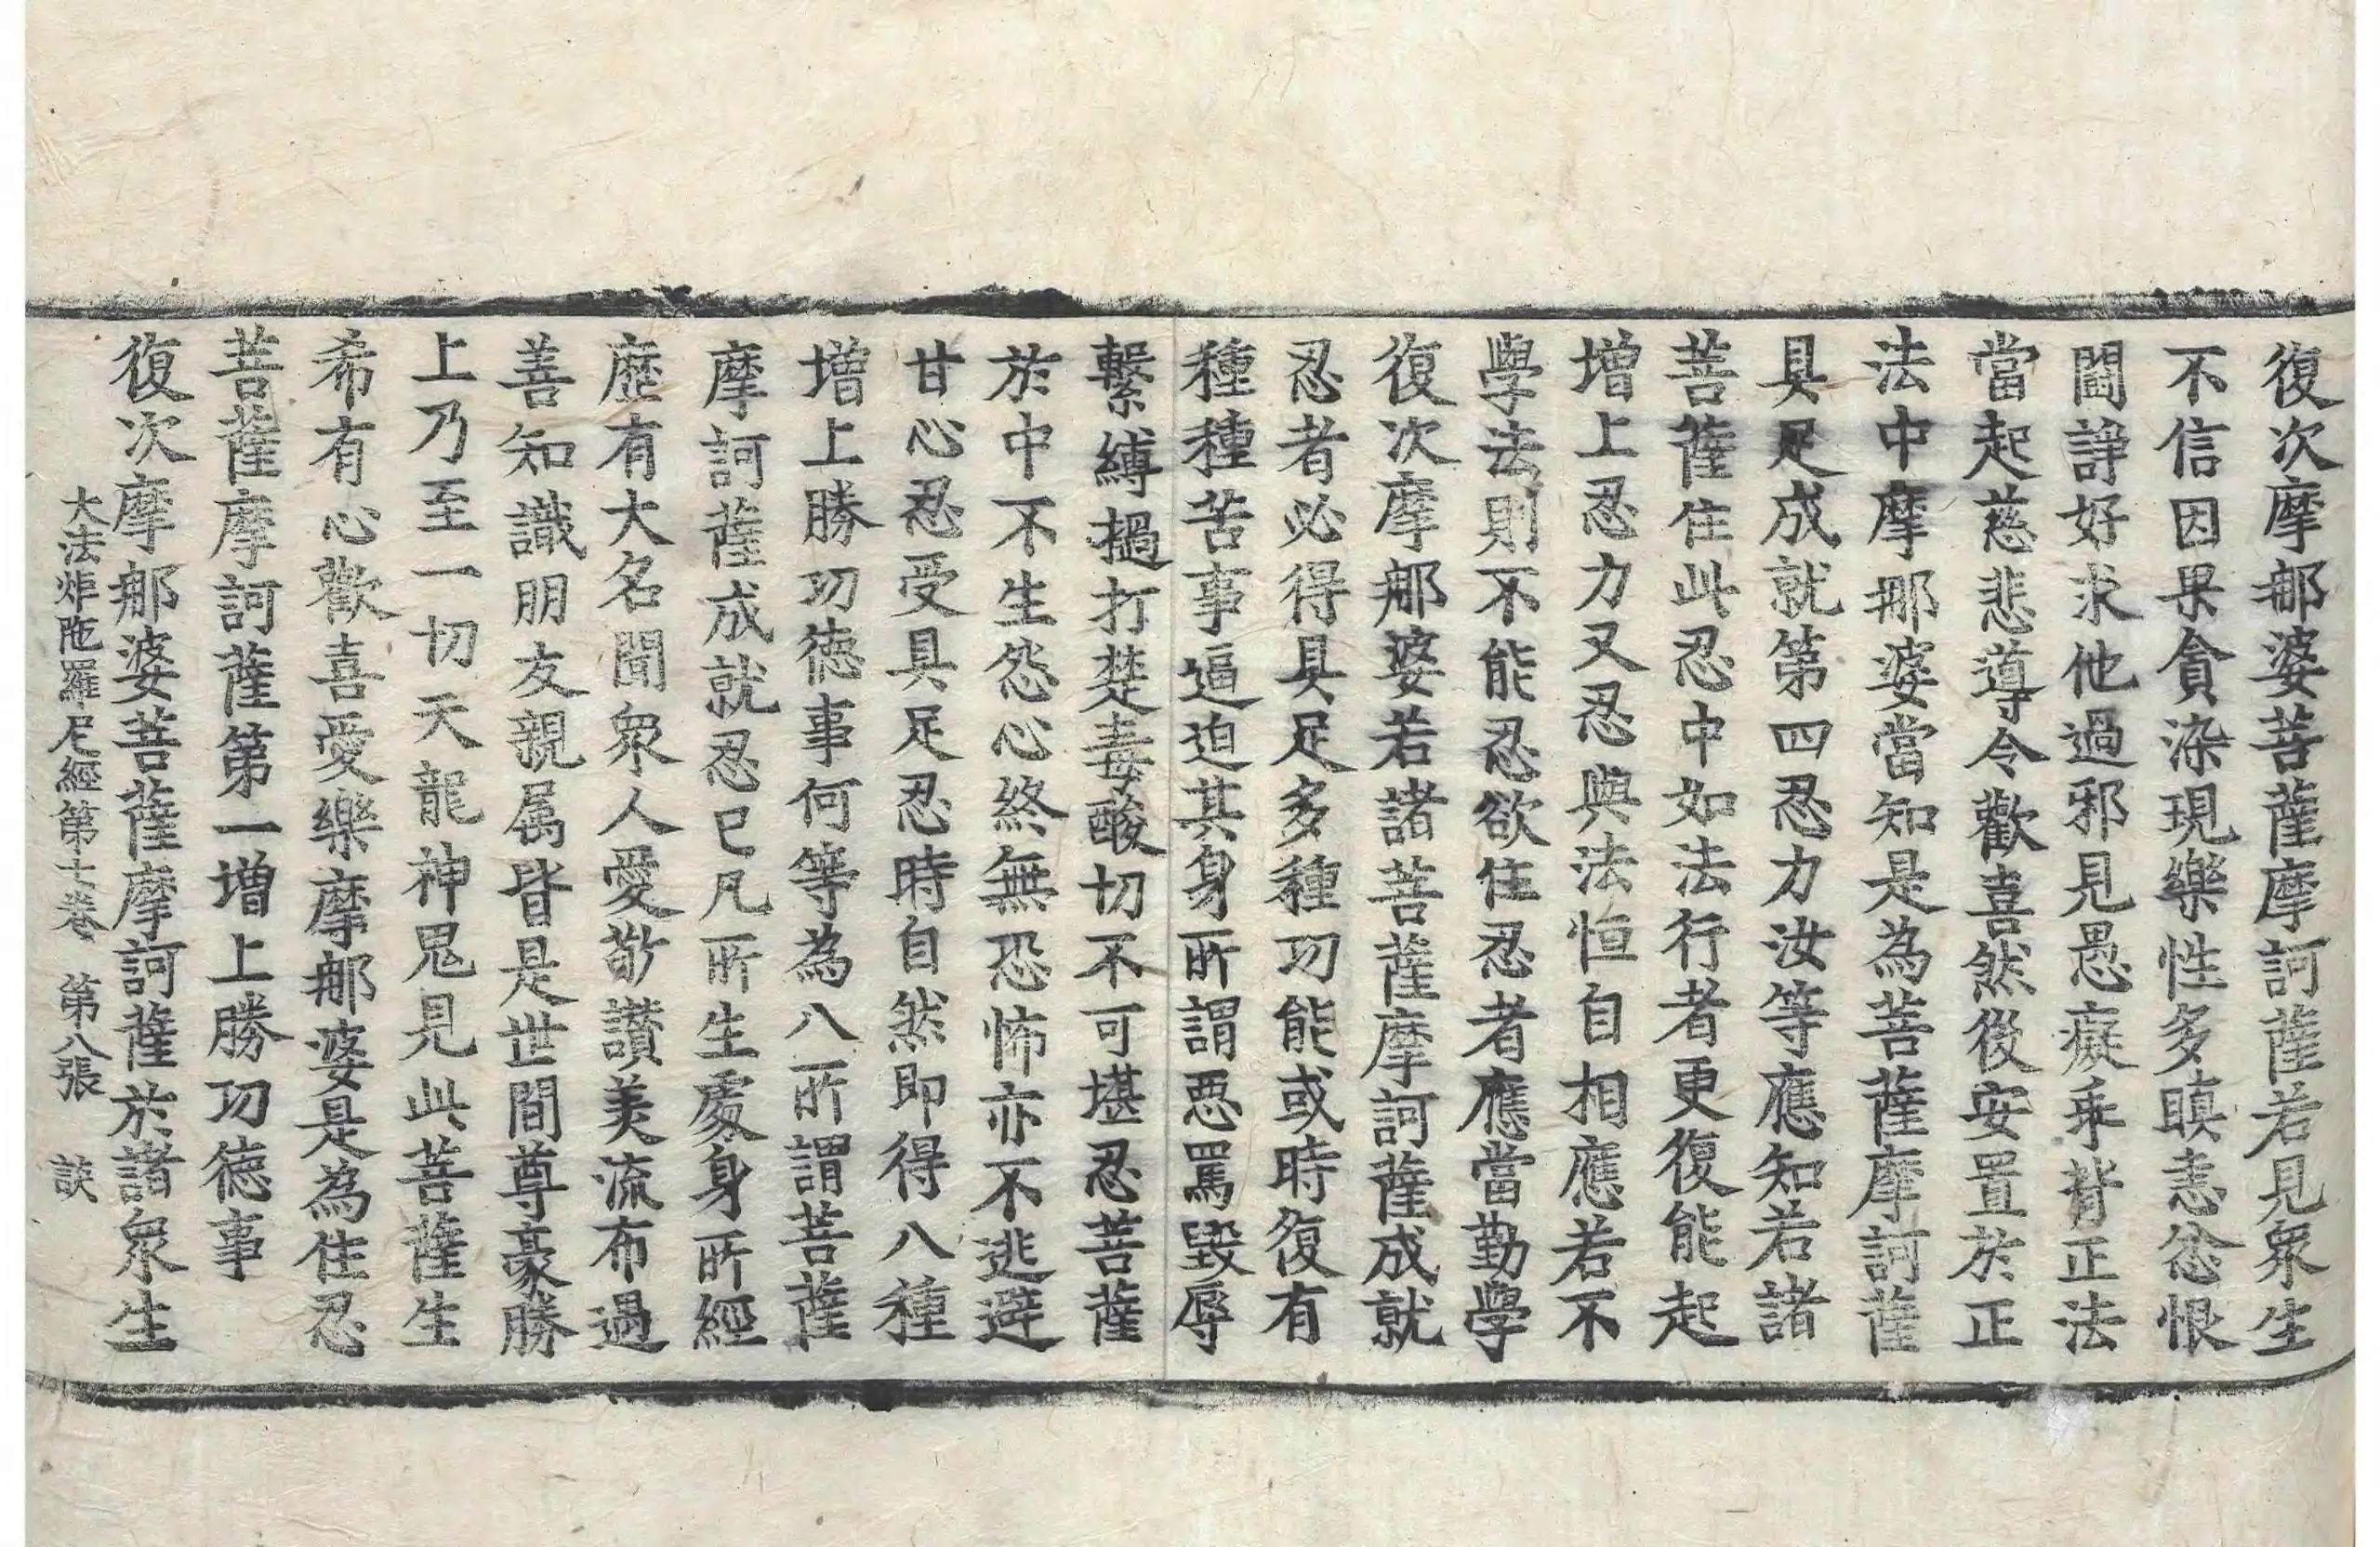 復次摩那婆菩薩摩訶薩若見衆生
不信因果貪染現樂性多瞋恚忿恨
鬪諍好求他過邪見愚癡乖背正法
當起慈悲導令歡喜然後安置於正
法中摩那婆當知是為菩薩摩訶薩
具足成就第四忍力汝等應知若諸
菩薩住此忍中如法行者更復能起
增上忍力又忍與法恒自相應若不
學法則不能忍欲住忍者應當勤學
復次摩那婆若諸菩薩摩訶薩成就
忍者必得具足多種功能或時復有
種種苦事逼迫其身所謂惡罵毀辱
繫縛撾打楚毒酸切不可堪忍菩薩
於中不生怨心終無恐怖亦不逃避
甘心忍受具足忍時自然即得八種
增上勝功德事何等為八所謂菩薩
摩訶薩成就忍已凡所生處身所經
歷有大名聞衆人愛敬讚美流布過
善知識朋友親属皆是世間尊豪勝
上乃至一切天龍神鬼見此菩薩生
希有心歡喜愛樂摩那婆是為住忍
菩薩摩訶薩第一增上勝功德事
復次摩那婆菩薩摩訶薩於諸衆生
大法炬陁羅尼經第七卷 第八張 談